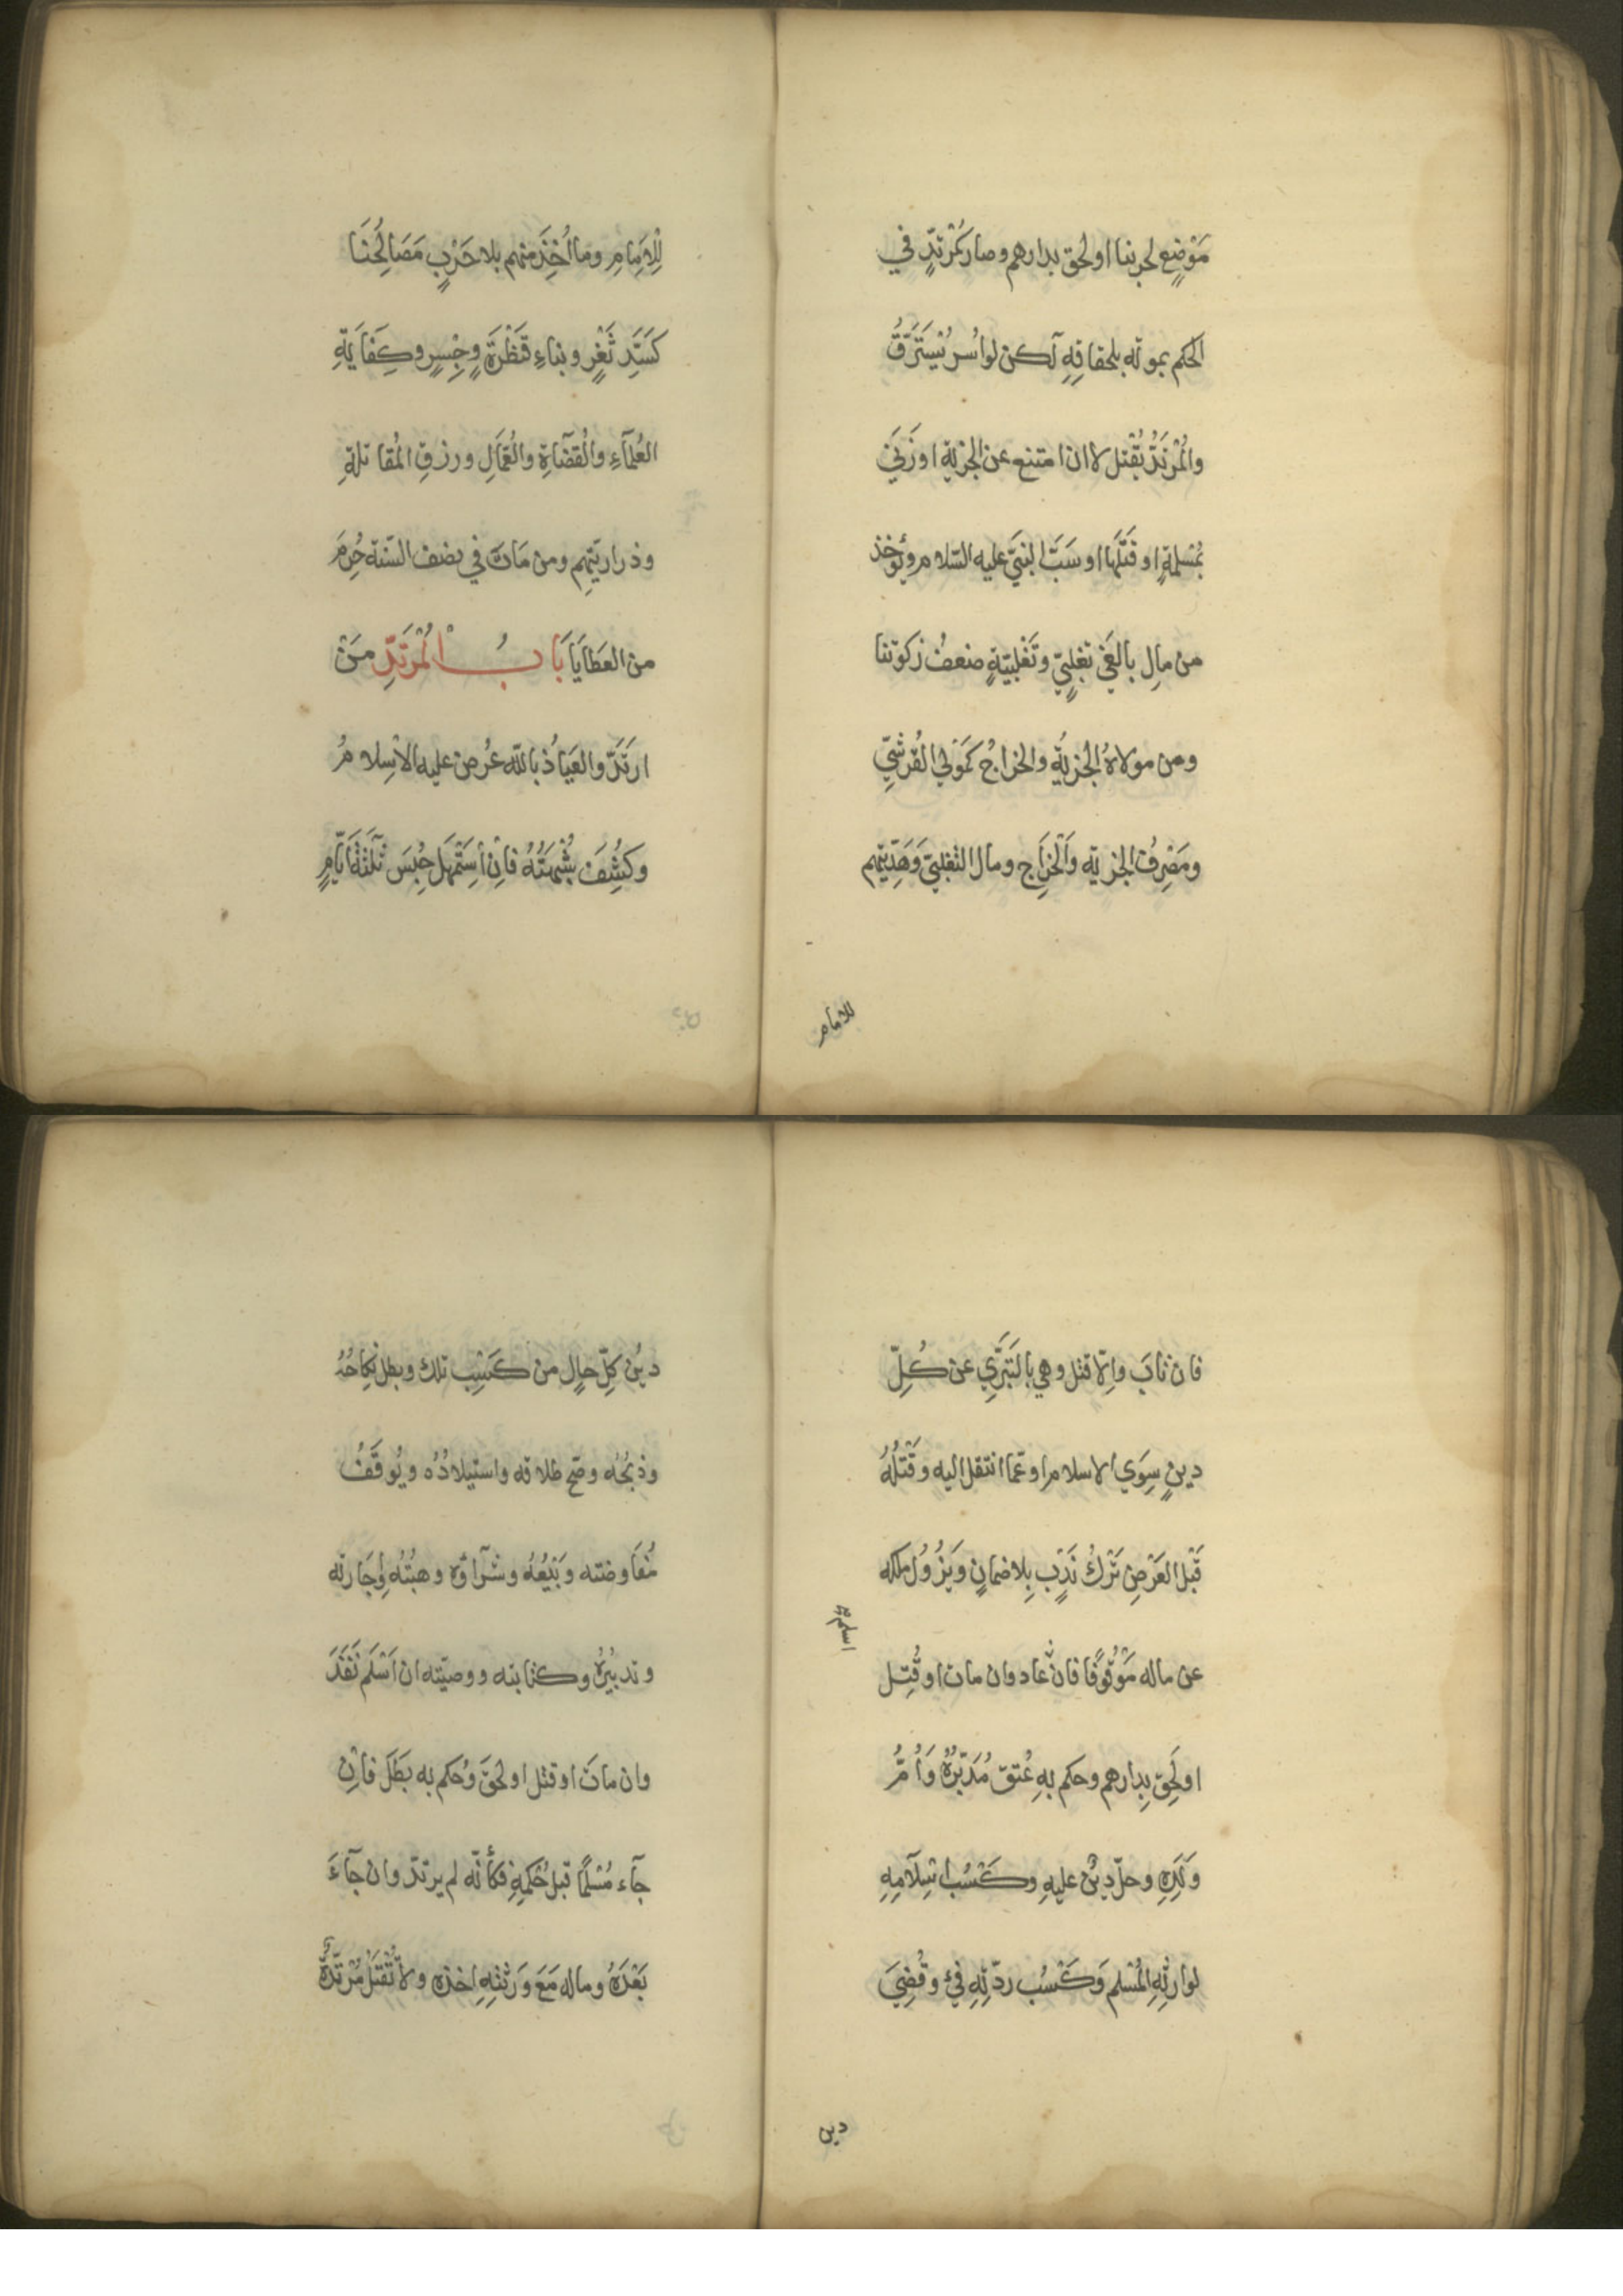 مَوْضِعٍ لحربنا او لحق بدارهم وصار كَمُرْتَدٍّ في
الحكم بموته بلحاقِهِ لكن لو اُسر يُسْتَرَقُّ
والمُرْتَدُّ يُقْتل لا ان امتنع عن الجزية او زَنَى
بمُسْلمةٍ او قَتَلَها او سَبَّ النبيَّ عليه السّلام ويُؤخذ
من مالِ بالغَي تغلِبيٍّ وتَغْلبيّةٍ ضعف زكوتنا
ومن مولاهُ الجزيةُ والخراجُ كَمَوْلى القُرَشيِّ
ومَصْرِفُ الجزية والخَرَاجِ ومال التغلبيّ وَهَدِيّتِهم
للامام
لِلْاِمَامِ وما اُخِذَ منهم بلا حَرْبٍ مَصَالِحُنَا
كَسَدِّ ثَغْرٍ وبناءِ قَنْطَرَةٍ وجِسرٍ وكِفَايَةِ
العُلَمَآءِ والقُضَاةِ والعُمَّالِ ورزقِ المُقاتلةِ
وذراريّهِم ومن مَاتَ في نصف السّنة حُرِمَ
من العَطَايَا بَابُ الْمُرْتَدِّ مَنْ
ارتَدَّ والعَيَاذُ بالله عُرِضَ عليه الاسْلامُ
وكُشِفَ شُبْهَتُهُ فاِنْ اسْتَمْهَلَ حُبِسَ ثَلٰثَةَ اَيَّامٍ
فان تابَ واِلّا قتل وهي بالتَبَرِّي عن كُلِّ
دينٍ سِوَى الاسلام او عمّا انتقل اليه وقَتْلُهُ
قَبْل العَرْضِ تَرْكُ نَدْبٍ بِلا ضمانٍ وَيَزُوْلُ ملكه
اسلم
عن ماله مَوْقُوفًا فان عاد وان مات او قُتِل
او لَحِقَ بِدارهم وحكم بهِ عُتِقَ مُدَبَّرُهُ وَاُمُّ
وَلَدِهِ وحلّ دينٌ عليهِ وكَسْبُ اسْلَامِهِ
لوارثِهِ المُسْلم وَكَسْبُ ردّتِهِ فَيْءٌ وقُضِيَ
دين
دينُ كلِّ حالٍ من كَسْبِ تلك وبطل نِكاحُهُ
وذبْحُه وصَحّ طلاقه واستيلادُهُ ويُوقَفُ
مُفَاوضته وَبَيْعُهُ وشرآؤه وهبتُهُ واِجَارته
وتدبيْرُهُ وكتابته ووصيّته ان اَسْلَم نَفَذَ
وان ماتَ او قتل او لحقَ وحُكم به بَطَلَ فاِنْ
جآءَ مُسْلمًا قبل حُكْمِهِ فكأنّه لم يرتدّ وان جَآءَ
بَعْدَهُ وماله مَعَ وَرَثتِهِ اخذه ولا تُقْتَلُ مُرْتَدَّةٌ